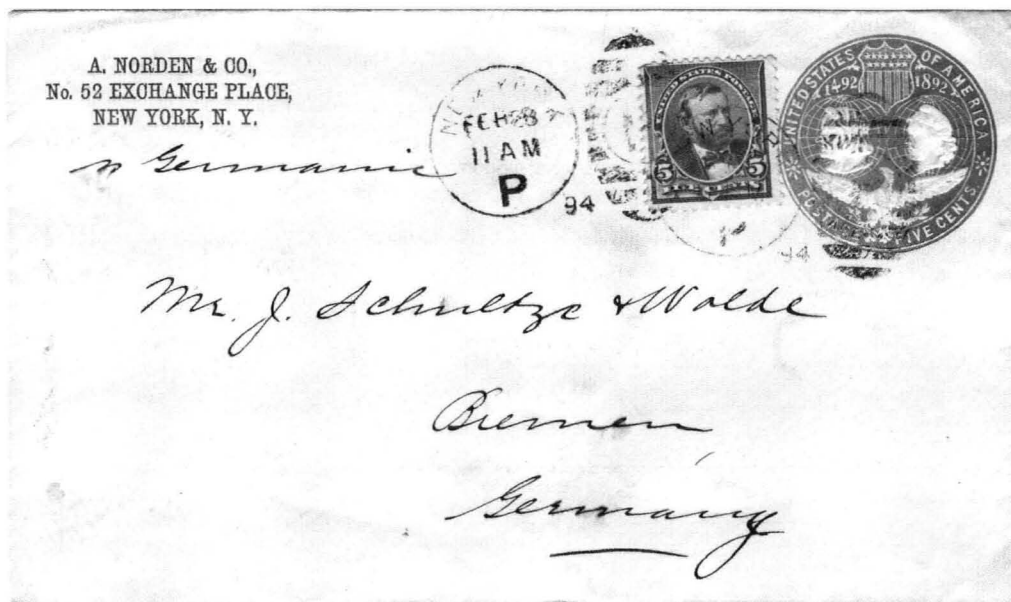 A. NORDEN & CO.,
No. 52 EXCHANGE PLACE,
NEW YORK, N. Y.
Germanic
NEW YORK
FEB 28
11 AM
P
94
UNITED STATES POSTAGE
5 5
UNITED STATES OF AMERICA
1492 1892
POSTAGE FIVE CENTS
94
Mr. J. Schultze & Wolde
Bremen
Germany